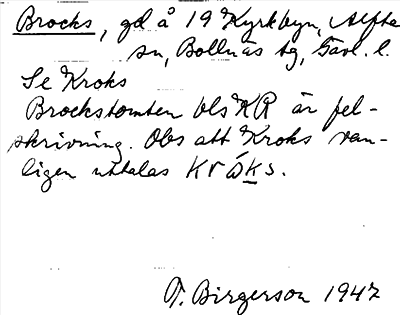 Brocks, gd å 19 Kyrkbyn, Alfta
sn, Bollnäs tg, Gävl. l.
Se Kroks
Brockstomten bls KR är fel-
skrivning. Obs att Kroks van-
ligen uttalas
T. Birgerson 1947